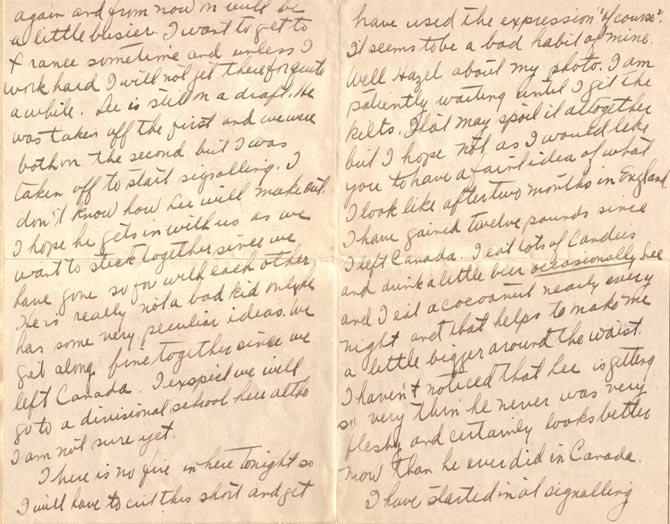 again and from now on will be
a little busier. I want to get to
France sometime and unless I
work hard I will not get there for quite
awhile. Lee is still on a draft. He
was taken off the first and we were
both on the second but I was
taken off to start signalling. I
don't know how Lee will make out.
I hope he gets in with us as we
want to stick together since we
have gone so far with each other
He is really not a bad kid only he
has some very peculiar ideas. We
get along fine together since we
left Canada. I expect we will
go to a divisional school here altho
I am not sure yet.
I here is no fire in here tonight so
I will have to cut this short and get
have used the expression "of course".
It seems to be a bad habit of mine.
Well Hazel about my photo. I am
patiently waiting until I get the
kilts. That may spoil it altogether
but I hope not as I would like
you to have a faint idea of what
I look like after two months in England
I have gained twelve pounds since
I left Canada. I eat lots of Candies
and drink a little beer occasionally Lee
and I eat a cocoanut nearly every
night and that helps to make me
a little bigger around the waist.
I haven't noticed that Lee is getting
so very thin he never was very
fleshy and certainly looks better
now than he ever did in Canada.
I have started in at signalling